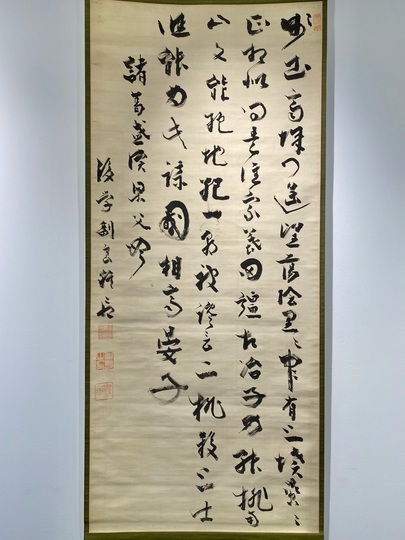 步出齊城門遙望蕩陰里〻中有三墳纍〻
正相似問是誰家墓田疆古冶子力能排南
山文能絶地紀一朝被讒言二桃殺三士
誰能為此謀國相齊晏子
諸葛武侯梁父吟
後學劉